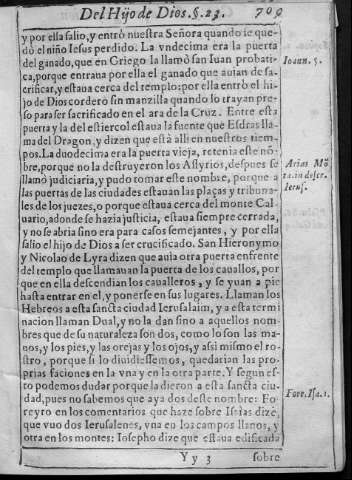 Del Hijo de Dios. §. 23. 709
y por ella salio, y entrò nuestra Señora quando se que-
dò el niño Iesus perdido. La vndecima era la puerta
del ganado, que en Griego la llamò san Iuan probati-
ca, porque entraua por ella el ganado que auian de sa-
crificar, y estaua cerca del templo: por ella entrò el hi-
jo de Dios cordero sin manzilla quando lo trayan pre-
so para ser sacrificado en el ara de la Cruz. Entre esta
puerta y la del estiercol estaua la fuente que Esdras lla-
ma del Dragon, y dizen que està alli en nuestros tiem-
pos. La duodecima era la puerta vieja, retenia este nõ-
bre, porque no la destruyeron los Assyrios, despues se
llamò judiciaria, y pudo tomar este nombre, porque a
las puertas de las ciudades estauan las plaças y tribuna-
les de los juezes, o porque estaua cerca del monte Cal-
uario, adonde se hazia justicia, estaua siempre cerrada,
y no se abria sino era para casos semejantes, y por ella
salio el hijo de Dios a ser crucificado. San Hieronymo
y Nicolao de Lyra dizen que auia otra puerta enfrente
del templo que llamauan la puerta de los cauallos, por
que en ella descendian los caualleros, y se yuan a pie
hasta entrar en el, y ponerse en sus lugares. Llaman los
Hebreos a esta sancta ciudad Ierusalaim, y a esta termi
nacion llaman Dual, y no la dan sino a aquellos nom-
bres que de su naturaleza son dos, como lo son las ma-
nos, y los pies, y las orejas y los ojos, y assi mismo el ro-
stro, porque si lo diuidiessemos, quedarian las pro-
prias faciones en la vna y en la otra parte. Y segun es-
to podemos dudar porque la dieron a esta sancta ciu-
dad, pues no sabemos que aya dos deste nombre: Fo-
reyro en los comentarios que haze sobre Isaias dize,
que vuo dos Ierusalenes, vna en los campos llanos, y
otra en los montes: Iosepho dize que estaua edificada
Yy 3 sobre
Ioann. 5.
Arias Mõ
ta. in descr.
Ierus.
Fore. Isa. 1.